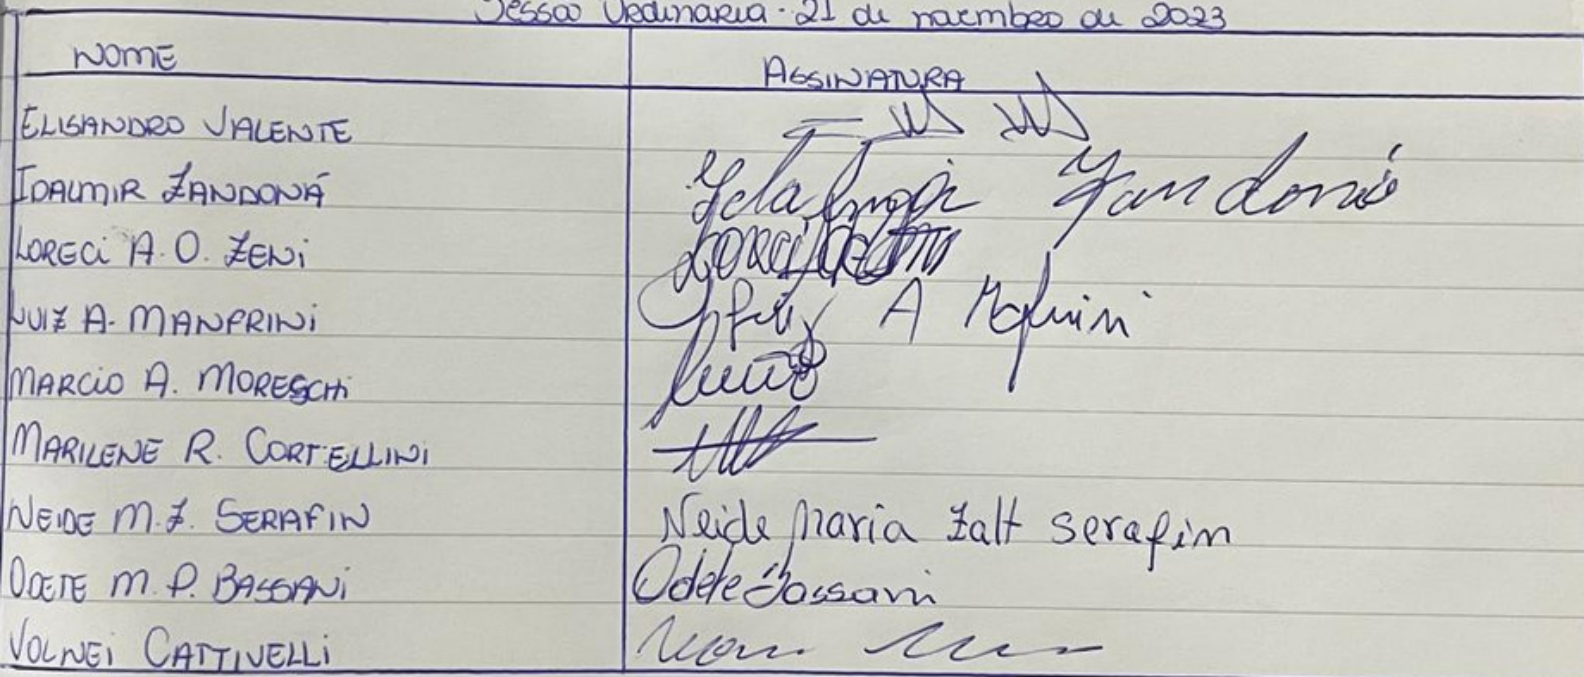 Sessão Ordinária - 21 de novembro de 2023
NOME ASSINATURA
ELISANDRO VALENTE
IDALMIR ZANDONÁ Zandoná
LORECI A. O. ZENI
LUIZ A. MANFRINI A
MARCIO A. MORESCHI
MARILENE R. CORTELLINI
NEIDE M. Z. SERAFIN Neide Maria Zalt Serafim
ODETE M. P. BASSANI Odete Bassani
VOLNEI CATTIVELLI